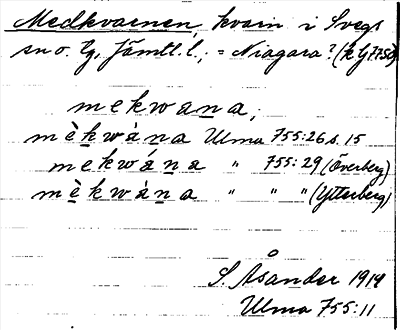 Medkvarnen, kvarn i Svegs
sn o. tg, Jämtl. l.; = Niagara? (
mekwana,
mèkwána Ulma 755:26 s. 15
mekwána " 755:29 (Överberg)
mèkwàna " " " (Ytterberg)
S. Åsander 1919
Ulma 755:11